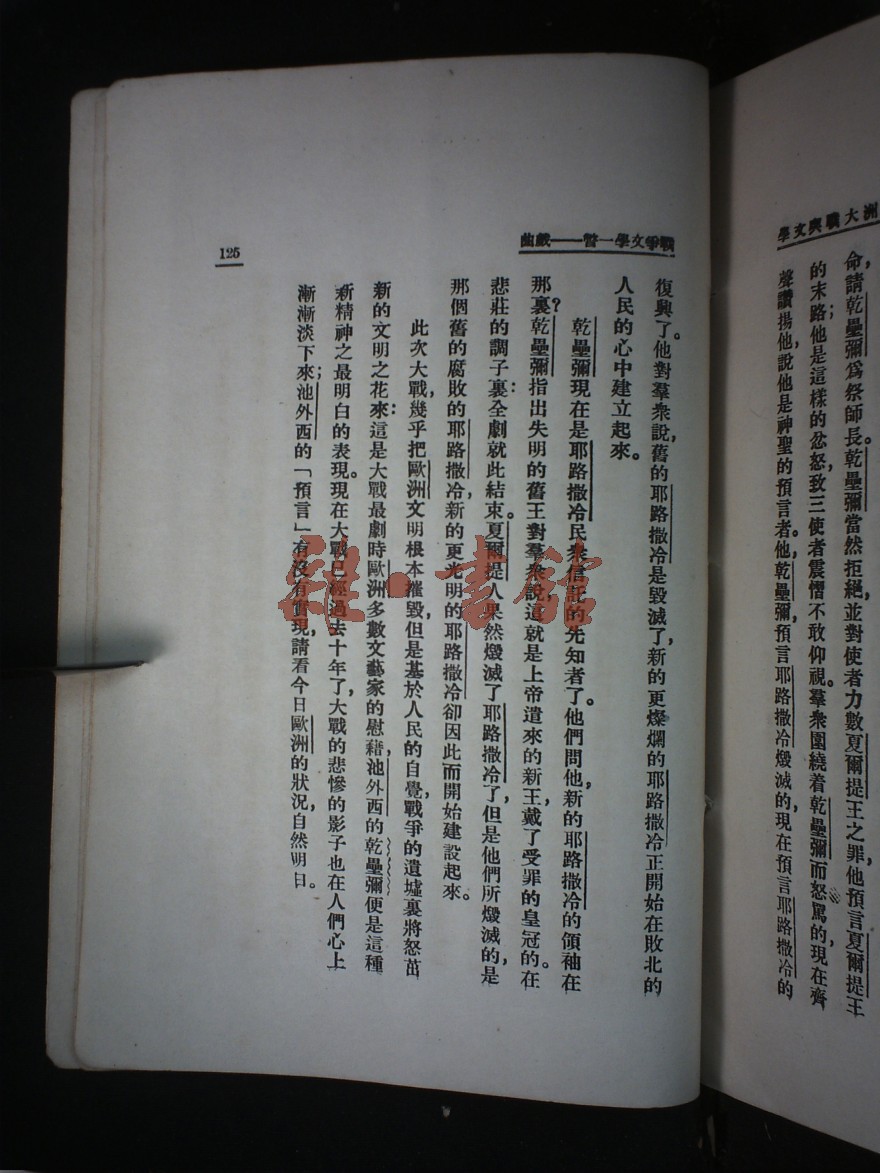 洲大戰與文學
命請乾壘彌爲祭師長。乾壘彌當然拒絕,並對使者力數夏爾提王之罪,他預言夏爾提王
的末路;他是這樣的忿怒,致三使者震慴不敢仰視。羣衆圍繞着乾壘彌而怒罵的,現在齊
聲讚揚他,說他是神聖的預言者。他,乾壘彌預言耶路撒冷燬滅的,現在預言耶路撒冷的
戰爭文學一瞥——戲曲
復興了。他對羣衆說,舊的耶路撒冷是毀滅了,新的更燦爛的耶路撒冷正開始在敗北的
人民的心中建立起來。
乾壘彌現在是耶路撒冷民衆信託的先知者了。他們問他,新的耶路撒冷的領袖在
那裏?乾壘彌指出失明的舊王對羣衆說,這就是上帝遣來的新王,戴了受罪的皇冠的。在
悲莊的調子裏:全劇就此結束。夏爾提人果然燬滅了耶路撒冷了,但是他們所燬滅的,是
那個舊的腐敗的耶路撒冷,新的更光明的耶路撒冷卻因此而開始建設起來。
此次大戰,幾乎把歐洲文明根本摧毀,但是基於人民的自覺,戰爭的遺墟裏將怒茁
新的文明之花來:這是大戰最劇時歐洲多數文藝家的慰藉,池外西的乾壘彌便是這種
新精神之最明白的表現。現在大戰已經過去十年了,大戰的悲慘的影子也在人們心上
漸漸淡下來;池外西的「預言」有沒有實現,請看今日歐洲的狀況,自然明白。
125
雜·書館